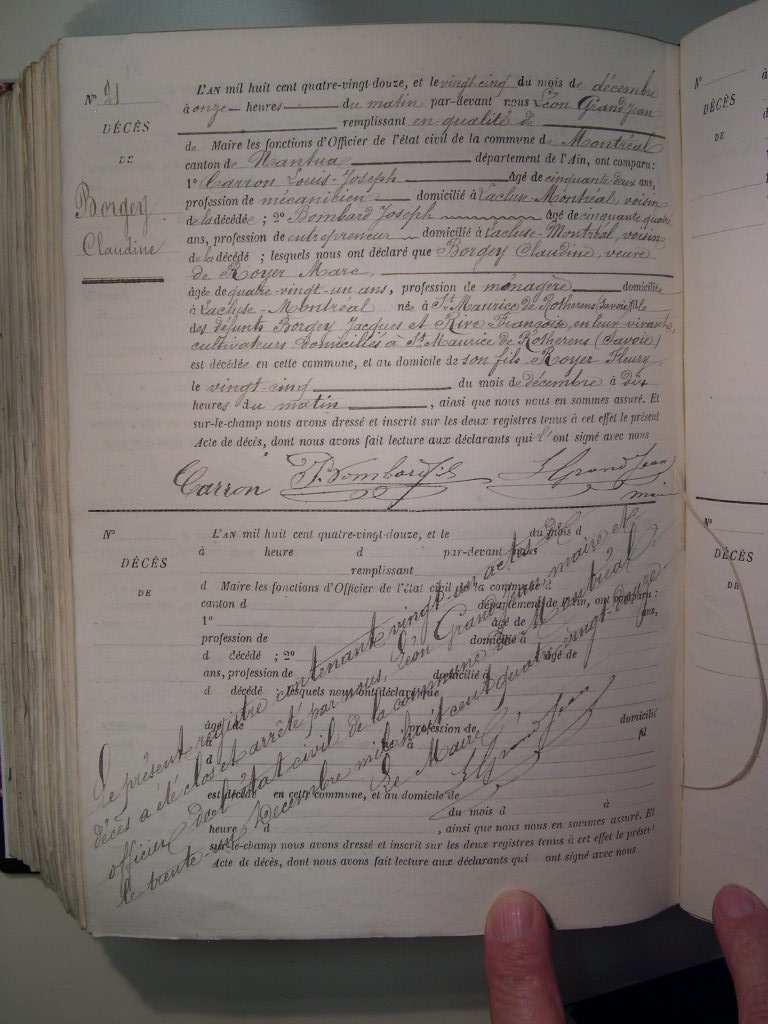 N° 21
DÉCÈS
DE
Borgey
Claudine
L'AN mil huit cent quatre-vingt-douze, et le vingt cinq du mois de décembre
à onze heures du matin par-devant nous Léon GrandJean
remplissant en qualité de
de Maire les fonctions d'Officier de l'état civil de la commune de Montréal
canton de Nantua département de l'Ain, ont comparu:
1° Carron Louis-Joseph âgé de cinquante deux ans,
profession de mécanicien domicilié à Lacluse-Montréal, voisin
de la décédée ; 2° Bombard Joseph âgé de cinquante quatre
ans, profession de entrepreneur domicilié à Lacluse-Montréal, voisin
de la décédé ; lesquels nous ont déclaré que Borgey Claudine, veuve
de Royer Marc,
âgée de quatre-vingt-un ans, profession de ménagère domiciliée
à Lacluse-Montréal née à St Maurice de Rotherens (Savoie) fille
des défunts Borgey Jacques et Rive Françoise, en leur vivant,
cultivateurs domiciliés à St Maurice de Rotherens (Savoie)
est décédée en cette commune, et au domicile de son fils Royer Fleury
le vingt-cinq du mois de décembre à dix
heures du matin, ainsi que nous nous en sommes assuré. Et
sur-le-champ nous avons dressé et inscrit sur les deux registres tenus à cet effet le présent
Acte de décès, dont nous avons fait lecture aux déclarants qui l'ont signé avec nous
Carron J. Bombard fils L GrandJean
maire
N°
DÉCÈS
DE
L'AN mil huit cent quatre-vingt-douze, et le du mois d
à heure d par-devant nous
remplissant
d Maire les fonctions d'Officier de l'état civil de la commune d
canton d département de l'Ain, ont comparu :
1° âgé de ans,
profession de domicilié à
d décédé ; 2° âgé de
ans, profession de domicilié à
d décédé ; lesquels nous ont déclaré que
âgé de profession de domicilié
à né à fil
d
est décédé en cette commune, et au domicile de
le du mois d à
heure d , ainsi que nous nous en sommes assuré. Et
sur-le-champ nous avons dressé et inscrit sur les deux registres tenus à cet effet le présent
Acte de décès, dont nous avons fait lecture aux déclarants qui ont signé avec nous
Le présent registre contenant vingt-un actes de
décès a été clos et arrêté par nous, Léon GrandJean, maire et
officier de l'état civil de la commune de Montréal
le trente-un Décembre mil huit cent quatre vingt-douze.
Le Maire
L GrandJean
N°
DÉCÈS
DE
à
d
N°
DÉCÈS
DE